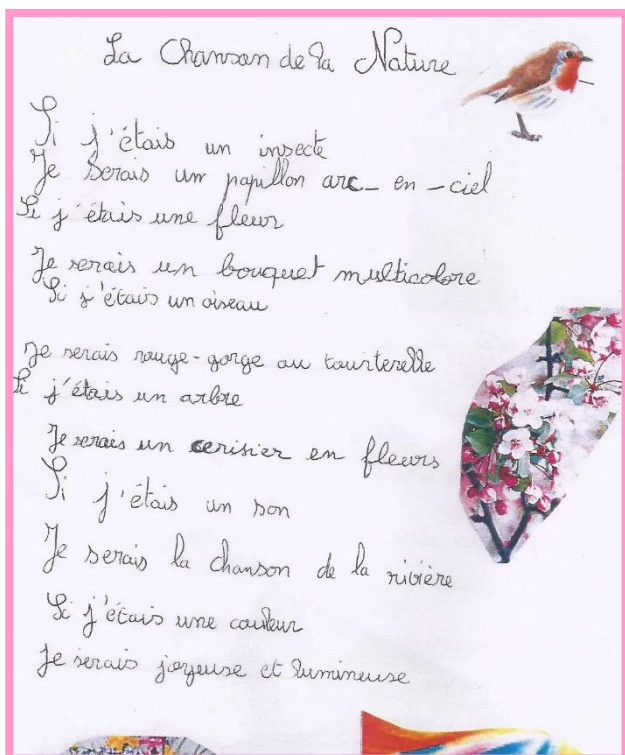 La Chanson de la Nature
Si j'étais un insecte
Je serais un papillon arc-en-ciel
Si j'étais une fleur
Je serais un bouquet multicolore
Si j'étais un oiseau
Je serais rouge-gorge ou tourterelle
Si j'étais un arbre
Je serais un cerisier en fleurs
Si j'étais un son
Je serais la chanson de la rivière
Si j'étais une couleur
Je serais joyeuse et lumineuse